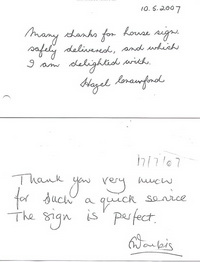 10.6.2007
Many thanks for house sign
safely delivered, and which
I am delighted with.
Hazel Crawford
17/7/07
Thank you very much
for such a quick service
The sign is perfect.